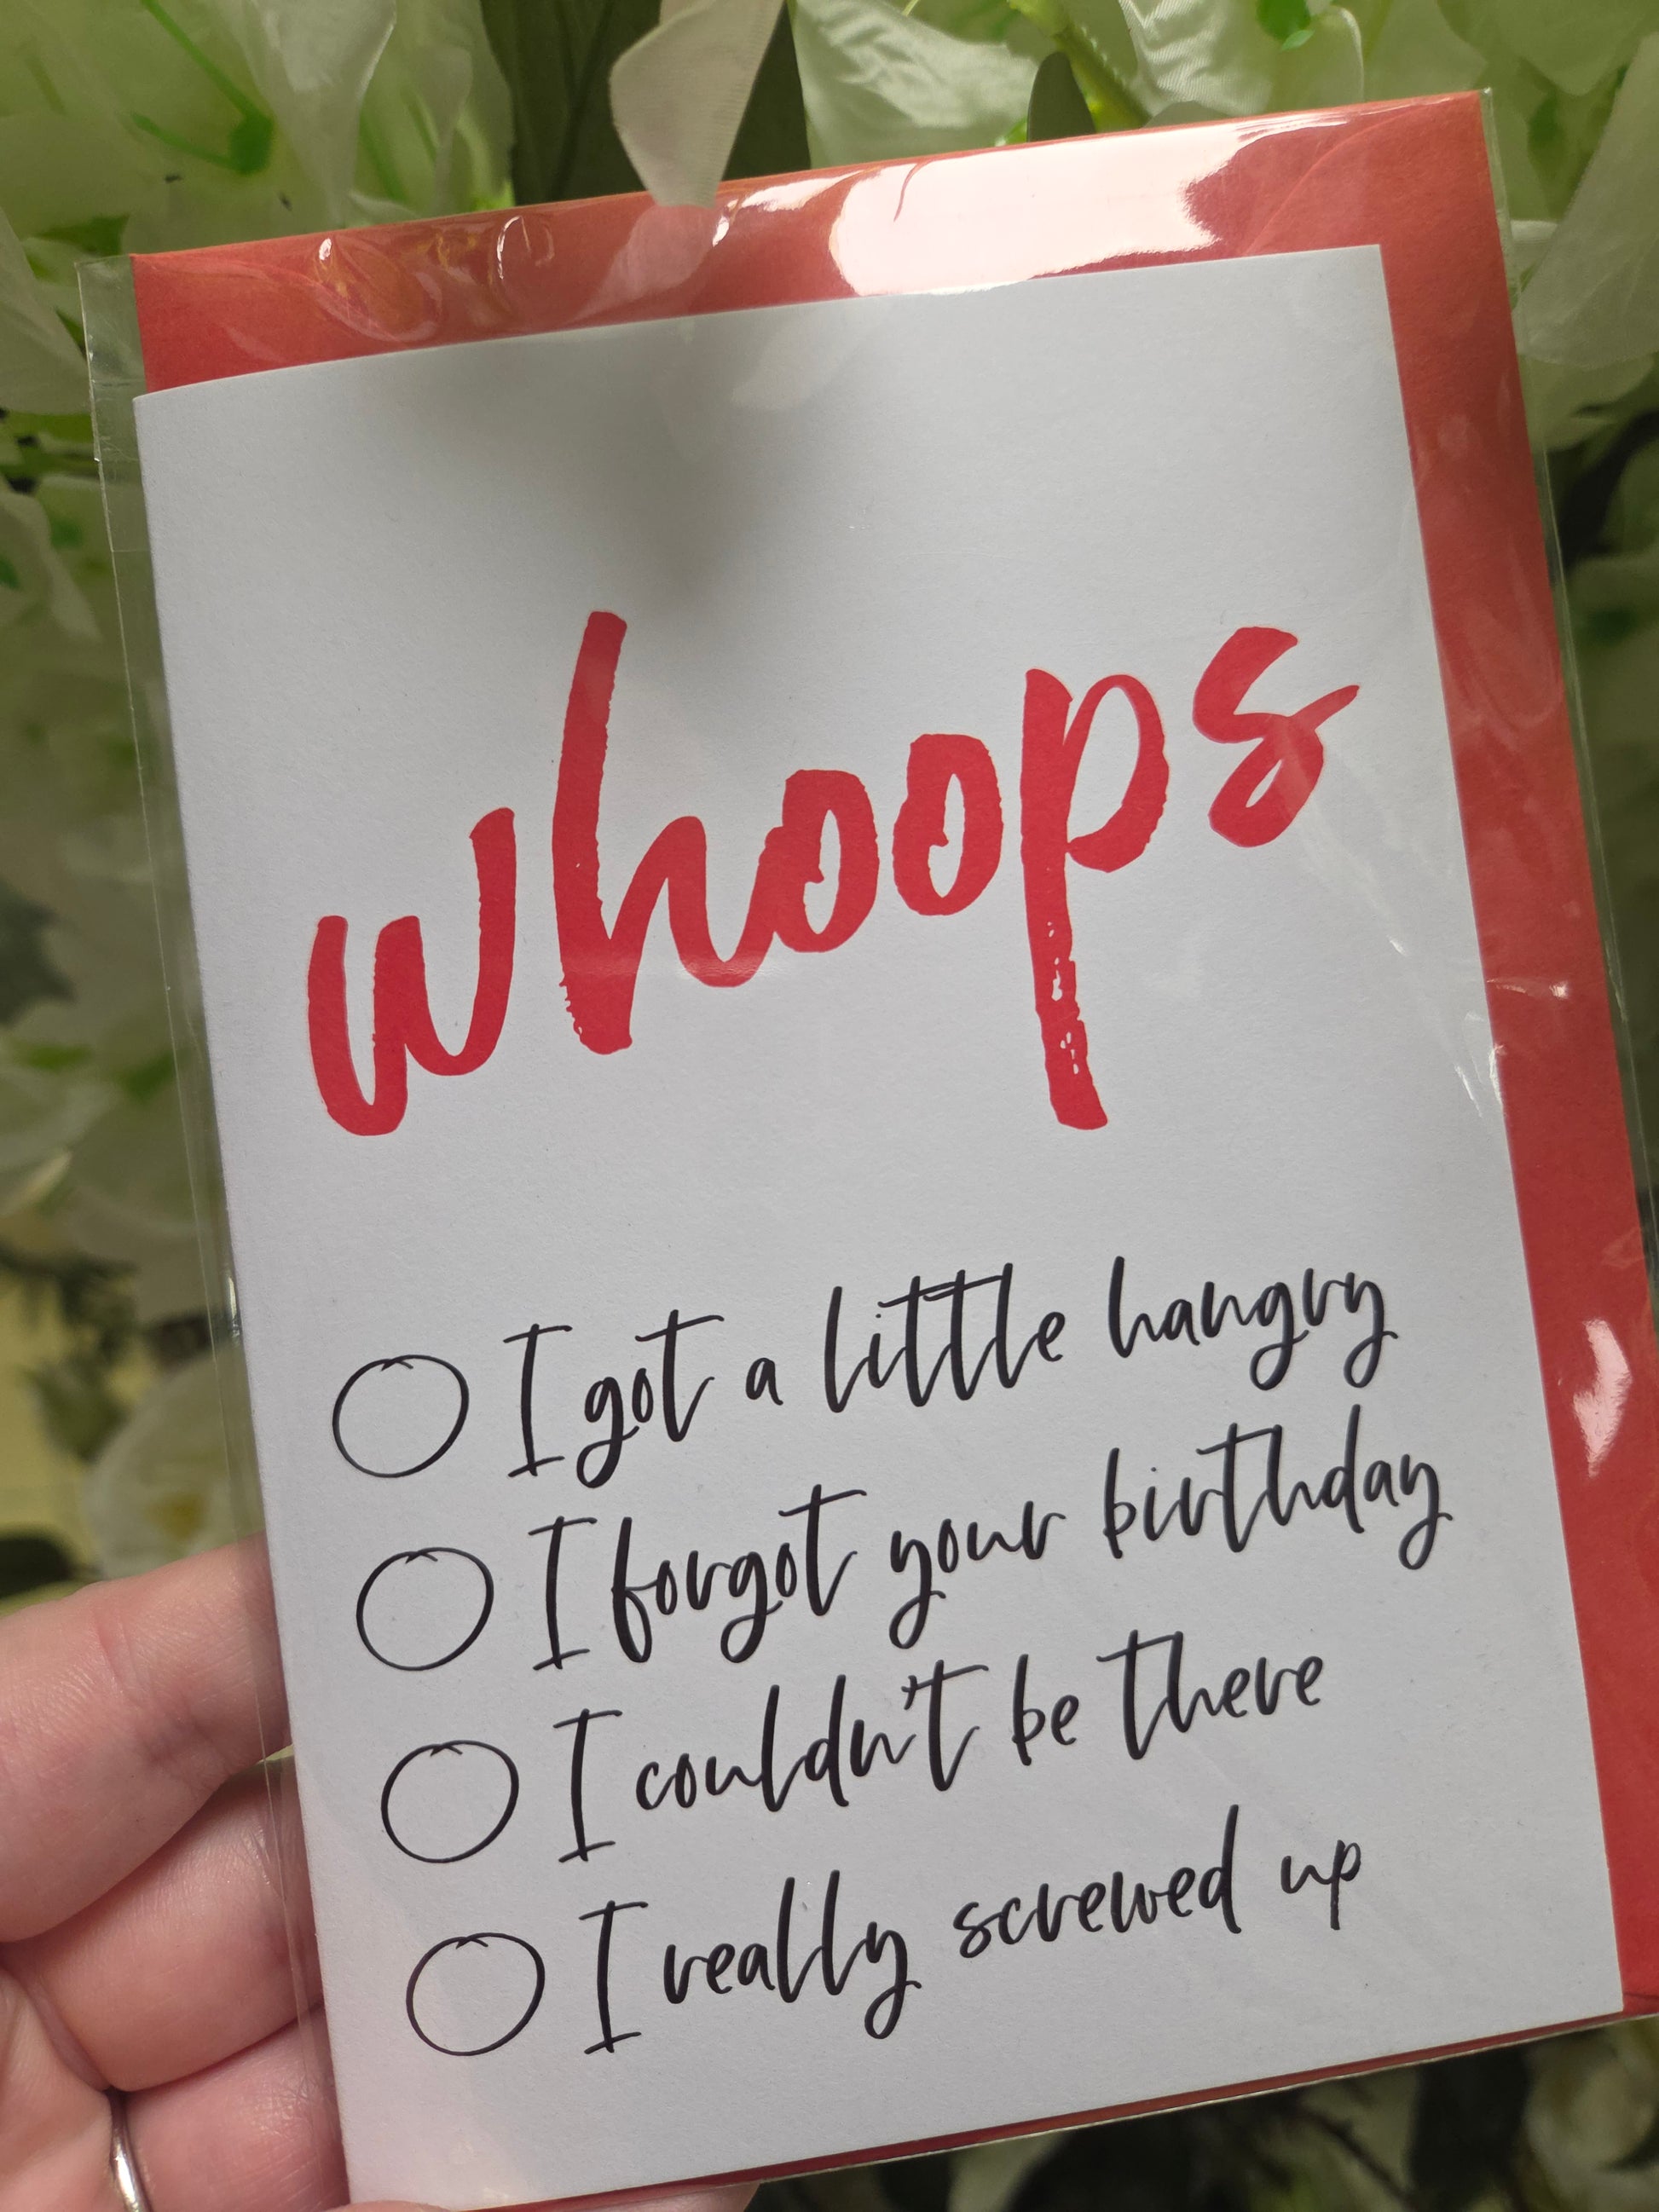 whoops
I got a little hangry
I forgot your birthday
I couldn't be there
I really screwed up